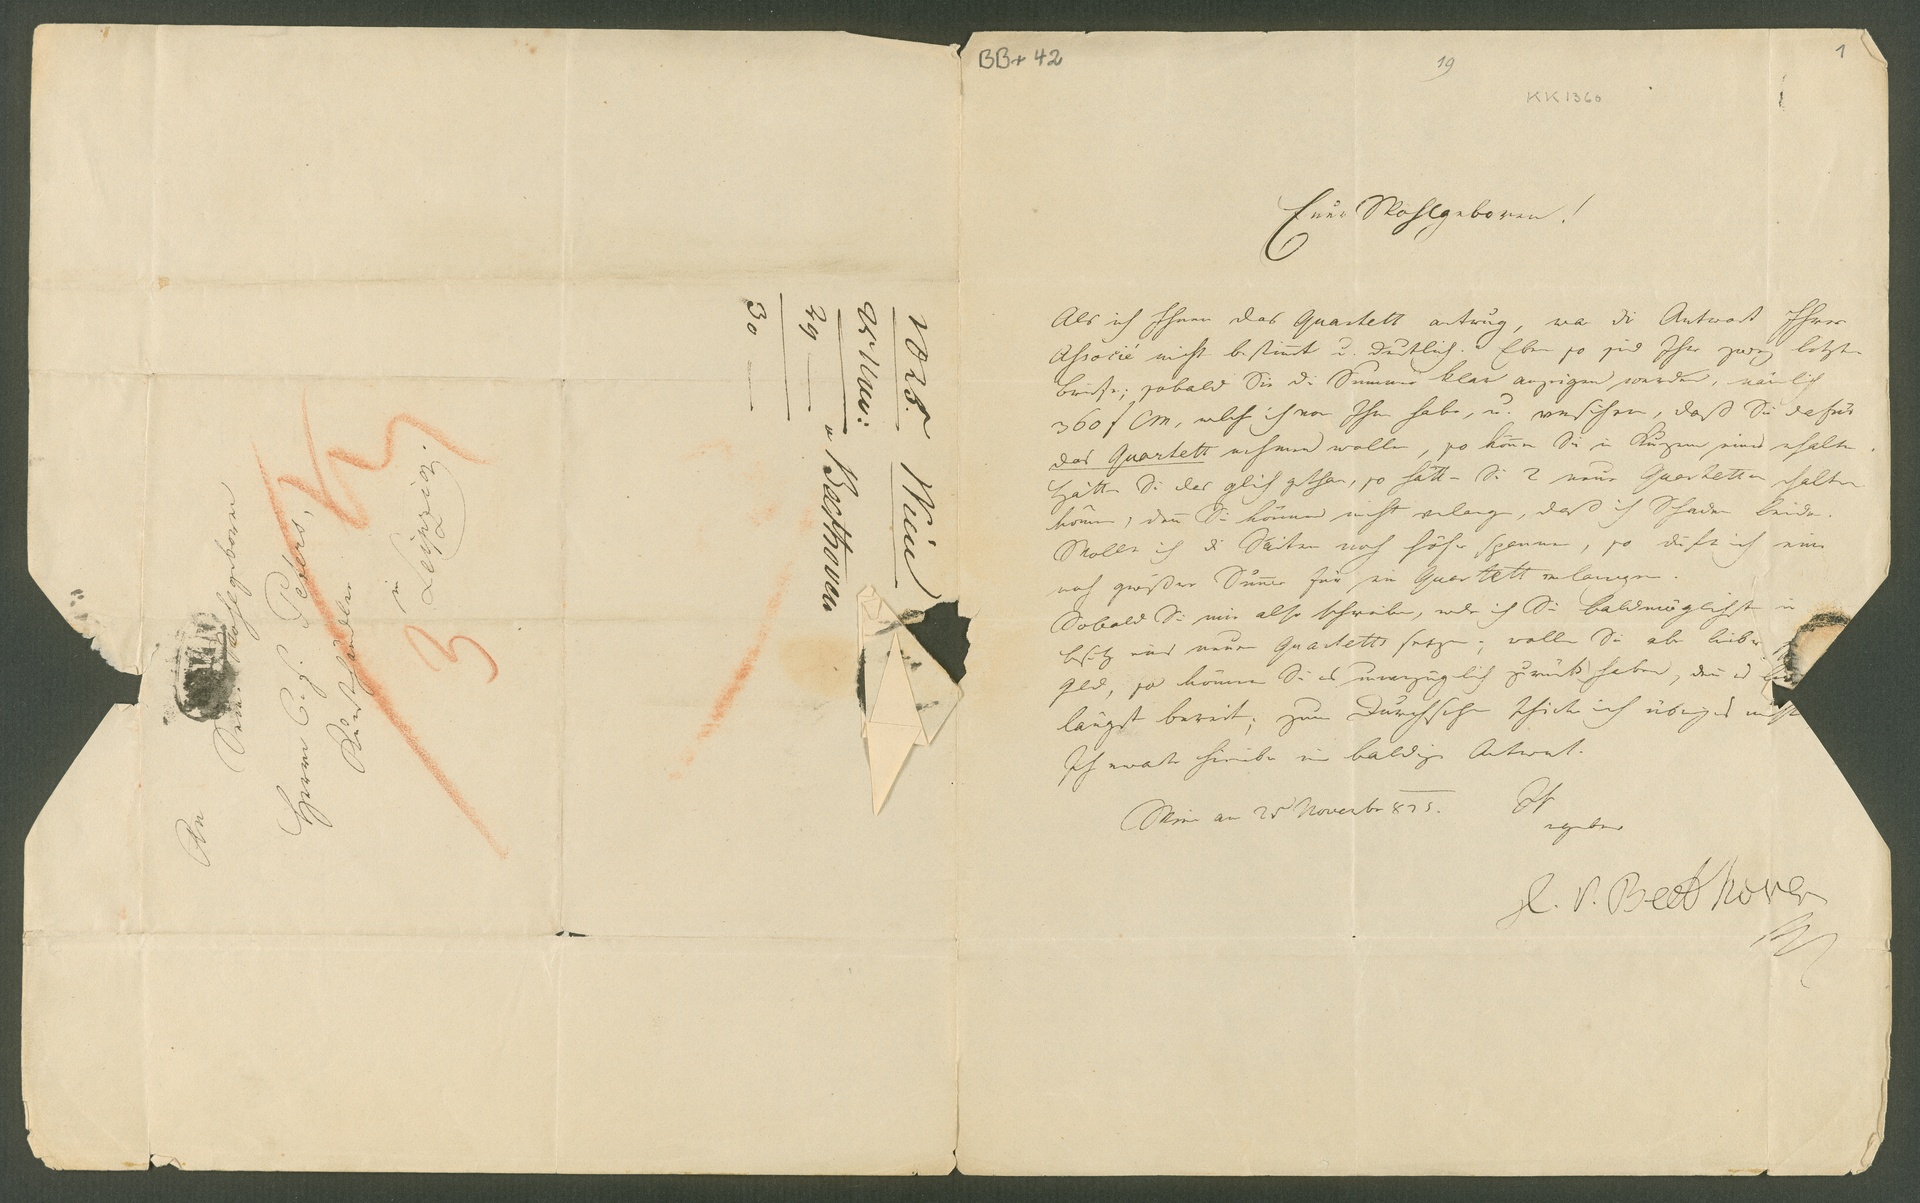 BBr 42
19
KK 1360
1
Euer Wohlgeboren!
Als ich Ihnen das Quartett antrug, war die Antwort Ihres
Associé nicht bestimt u. deutlich. Eben so sind Ihre zwey letzten
Briefe; sobald Sie die Summe klar anzeigen werden, nämlich
360 f CM, welche ich von Ihnen habe, u. versichern, daß Sie dafür
das Quartett nehmen wollen, so können Sie in Kurzem eines erhalten.
Hätten Sie das gleich gethan, so hätten Sie 2 neue Quartetten erhalten
können; denn Sie können nicht verlangen, daß ich Schaden leide.
Wollte ich die Saiten noch höher spannen, so dürfte ich eine
noch größere Summe für ein Quartett verlangen.
Sobald Sie mir also schreiben, werde ich Sie baldmöglichst in
Besitz eines neuen Quartetts setzen; wollen Sie aber lieber
Geld, so können Sie es unverzüglich zurück haben, denn es
längst bereit; zum Durchsehen schicke ich übrigens nichts
Ich erwarte hierüber eine baldige Antwort.
Wien am 25 November 825.
Ihr
ergebener
L. v. Beethoven
1825. Wien
25 Nov:
29 —
30 —
v Beethoven
An
Seine Wohlgeboren
Herrn C. F. Peters,
Kunsthändler
in
Leipzig.
3